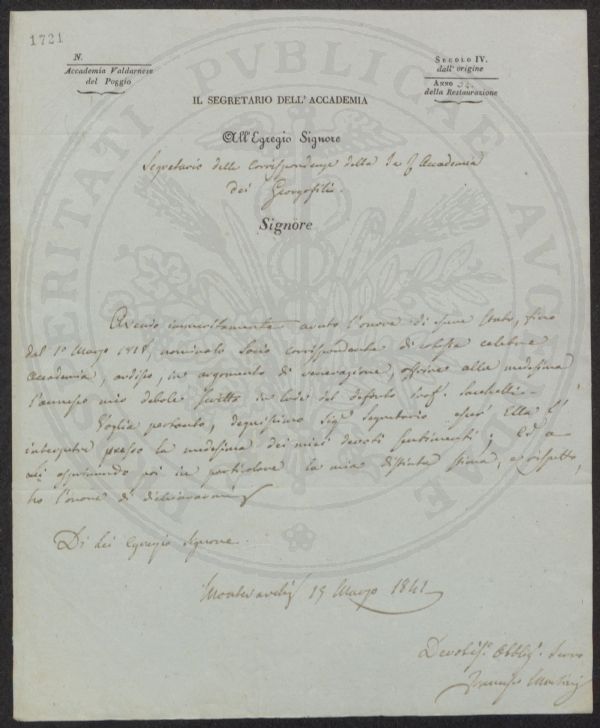 1721
N.
Accademia Valdarnese
del Poggio
SECOLO IV.
dall'origine
ANNO 34.
della Restaurazione
IL SEGRETARIO DELL'ACCADEMIA
All'Egregio Signore
Segretario delle Corrispondenze della Accademia
dei Georgofili.
Signore
Avendo immeritamente avuto l'onore di fino
dal 1º Marzo 1818, nominato Socio corrispondente di celebre
Accademia, ardisco, in argomento di venerazione, offrire alla medesima
l'annesso mio debole scritto in lode del defonto Prof. Sacchetti.
Voglia pertanto, degnissimo Sigr. Segretario Ella l'
interpetre presso la medesima dei miei devoti sentimenti; ed a
poi in particolare la mia distinta stima, e rispetto,
ho l'onore di dichiararmi
Di Lei Egregio Signore.
Montevarchi 15 Marzo 1841
Devotis.º Obblig.º Servo
Francesco
PVBLICAE